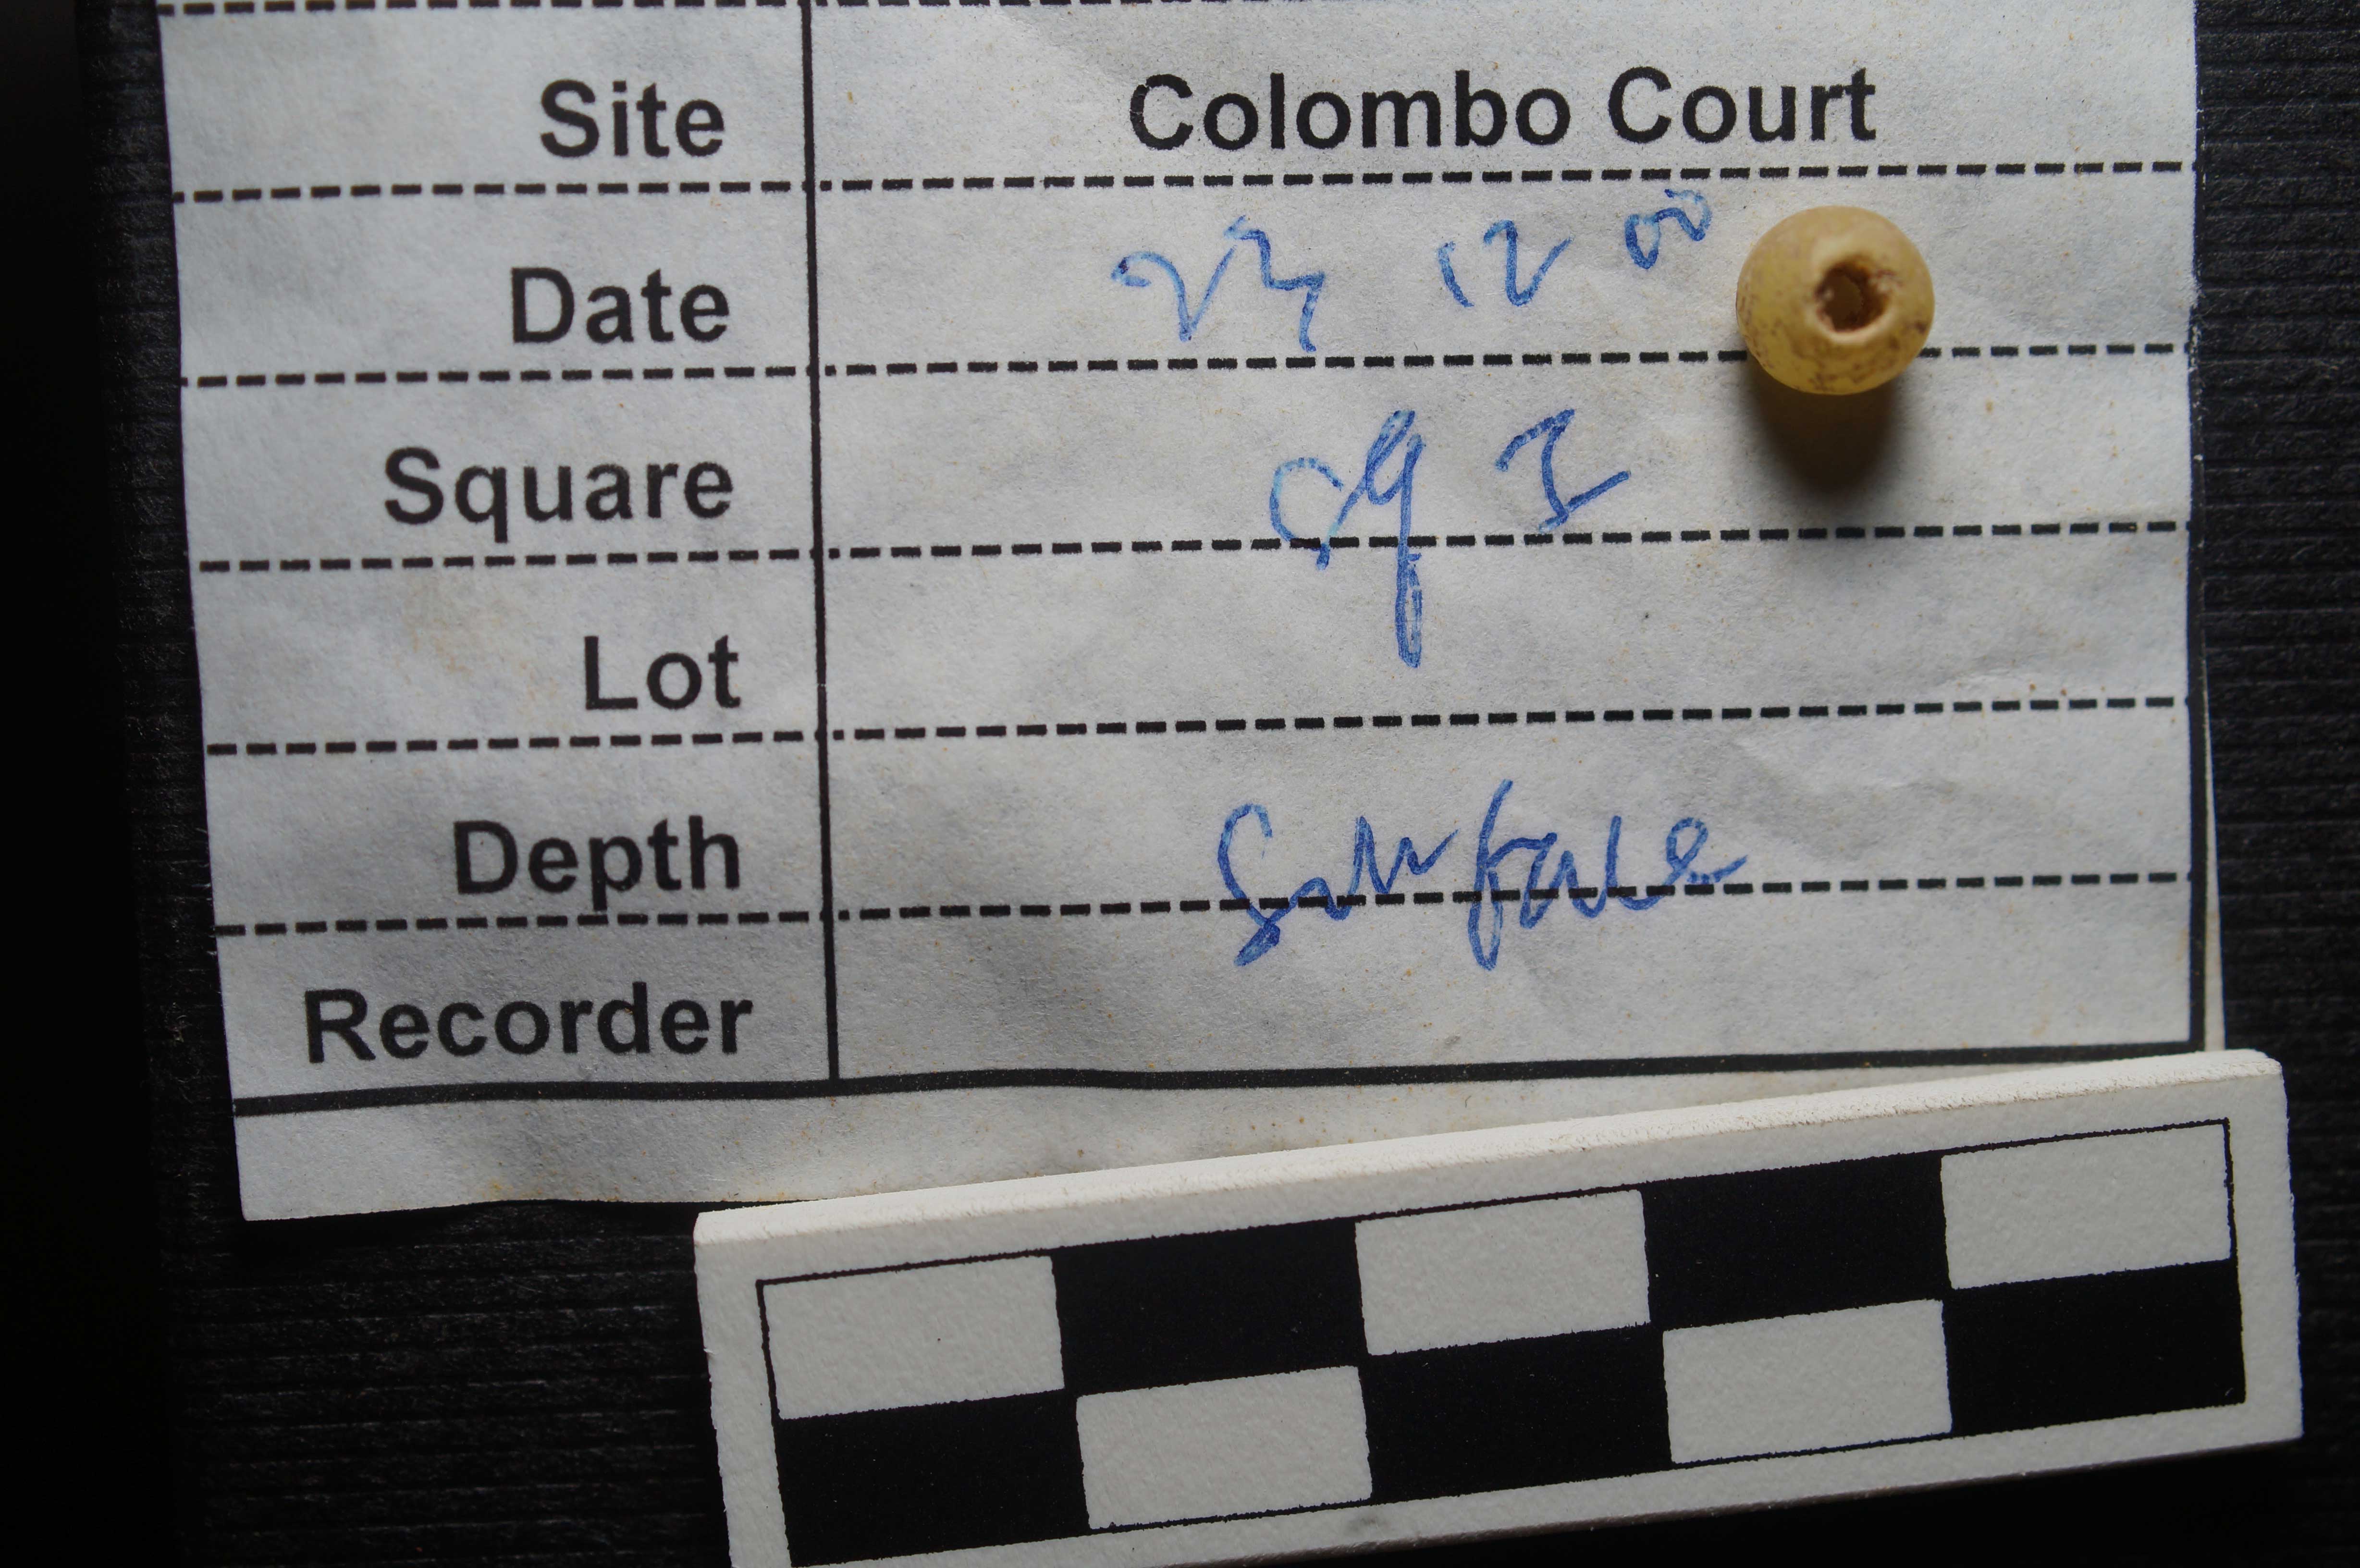 Site Colombo Court
Date 23 12 00
Square sq I
Lot
Depth Surface
Recorder